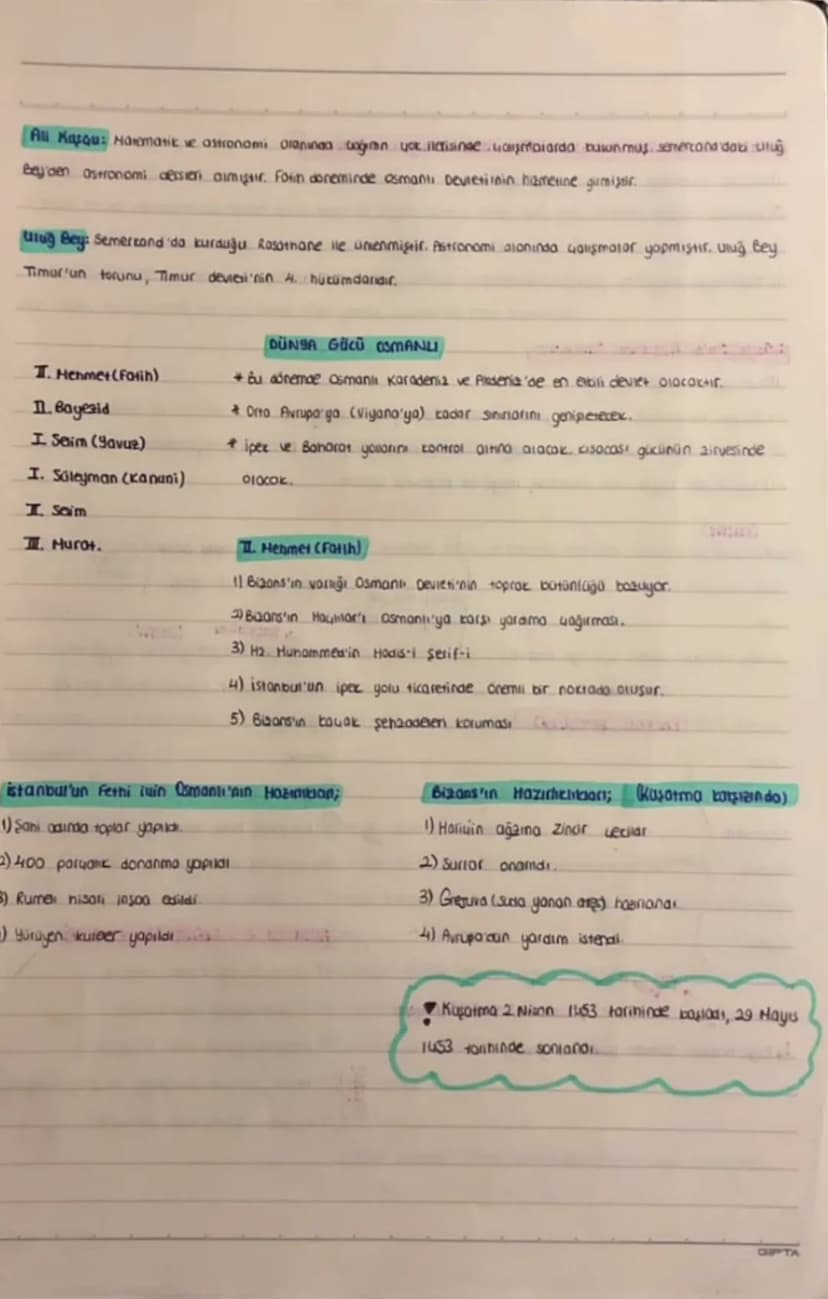 Ali Kuşçu: Matematik ve astronomi alanında çağının çok ilerisinde çalışmalarda bulunmuş. Semerkand'daki Uluğ
Bey'den astronomi dersleri almıştır. Fatih döneminde Osmanlı Devleti'nin hizmetine girmiştir.
Uluğ Bey: Semerkand'da kurduğu Rasathane ile ünlenmiştir. Astronomi alanında çalışmalar yapmıştır. Uluğ Bey
Timur'un torunu, Timur devleti'nin 4. hükümdarıdır.
DÜNYA GÜCÜ OSMANLI
II. Mehmet (Fatih)
II. Bayezid
I. Selim (Yavuz)
I. Süleyman (Kanuni)
II. Selim
III. Murat.
* Bu dönemde Osmanlı Karadeniz ve Akdeniz'de en etkili devlet olacaktır.
* Orta Avrupa'ya (Viyana'ya) kadar sınırlarını genişletecek.
* İpek ve Baharat yollarını kontrol altına alacak, kısacası gücünün zirvesinde
olacak.
II. Mehmet (Fatih)
1) Bizans'ın varlığı Osmanlı Devleti'nin toprak bütünlüğü bozuyor.
2) Bizans'ın Haçlılar'ı Osmanlı'ya karşı yardıma çağırması.
3) Hz. Muhammed'in Hadis-i Şerif-i
4) İstanbul'un ipek yolu ticaretinde önemli bir noktada oluşur.
5) Bizans'ın kaçak şehzadeleri koruması
İstanbul'un Fethi için Osmanlı'nın Hazırlıkları;
1) Şahi adında toplar yapıldı.
2) 400 parçalık donanma yapıldı
3) Rumeli hisarı inşaa edildi
) Yürüyen kuleler yapıldı
Bizans'ın Hazırlıkları; (Kuşatma karşısında)
1) Haliç'in ağzına zincir çektiler
2) Surlar onarıldı.
3) Grejuva (suda yanan ateş) hazırlandı
4) Avrupa'dan yardım istendi.
! Kuşatma 2 Nisan 1453 tarihinde başladı, 29 Mayıs
1453 tarihinde sonlandı.
GIPTA